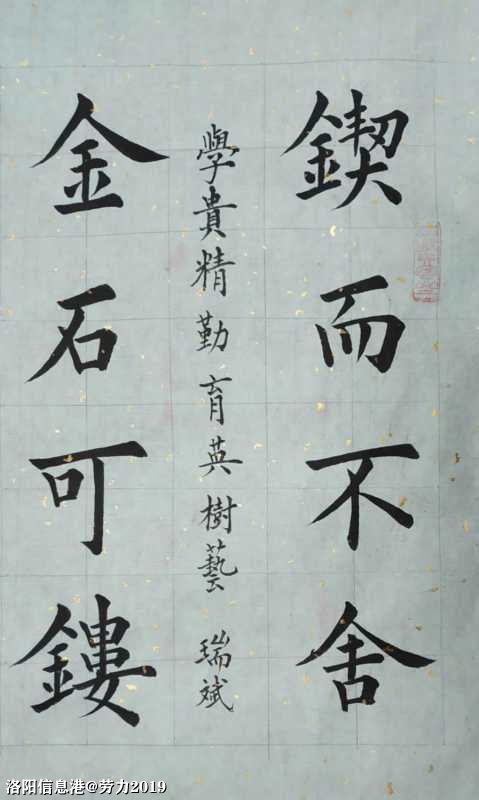 鍥而不舍
學貴精勤育英樹藝 瑞斌
金石可鏤
洛阳信息港@劳力2019